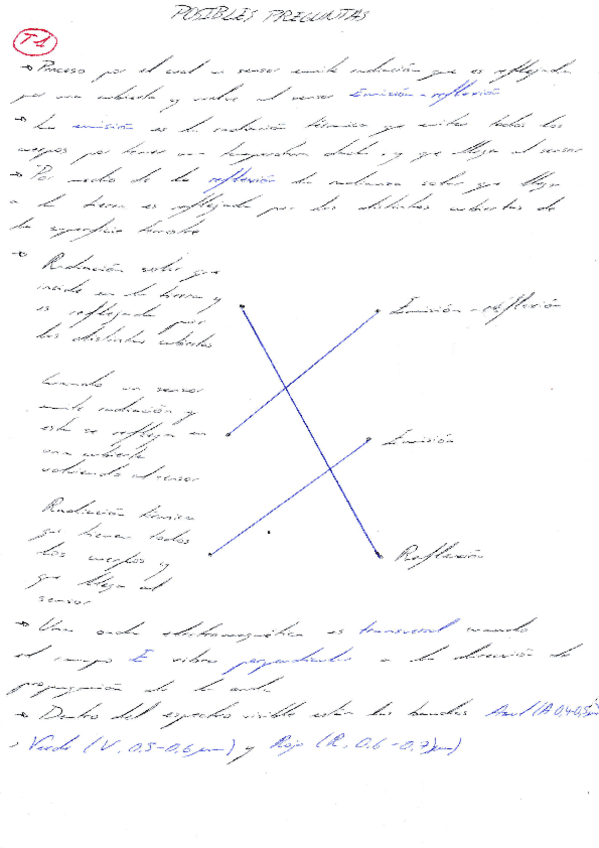 POSIBLES PREGUNTAS
T1
→ Proceso por el cual un sensor emite radiación que es reflejada
por una cubierta y vuelve al sensor Emisión-reflexión
→ La emisión es la radiación térmica que emiten todos los
cuerpos por tener una temperatura dada y que llega al sensor
→ Por medio de la reflexión la radiación solar que llega
a la tierra es reflejada por las distintas cubiertas de
la superficie terrestre
→ Radiación solar que
incide en la tierra y
es reflejada por
las distintas cubiertas
Emisión-reflexión
Cuando un sensor
emite radiación y
esta se refleja en
una cubierta
volviendo al sensor
Emisión
Radiación térmica
que tienen todos
los cuerpos y
que llega al
sensor
Reflexión
→ Una onda electromagnética es transversal cuando
el campo E vibra perpendicular a la dirección de
propagación de la onda
→ Dentro del espectro visible están las bandas Azul (A 0,4-0,5 μm)
, Verde (V, 0.5-0.6 μm) y Rojo (R, 0.6-0.7 μm)